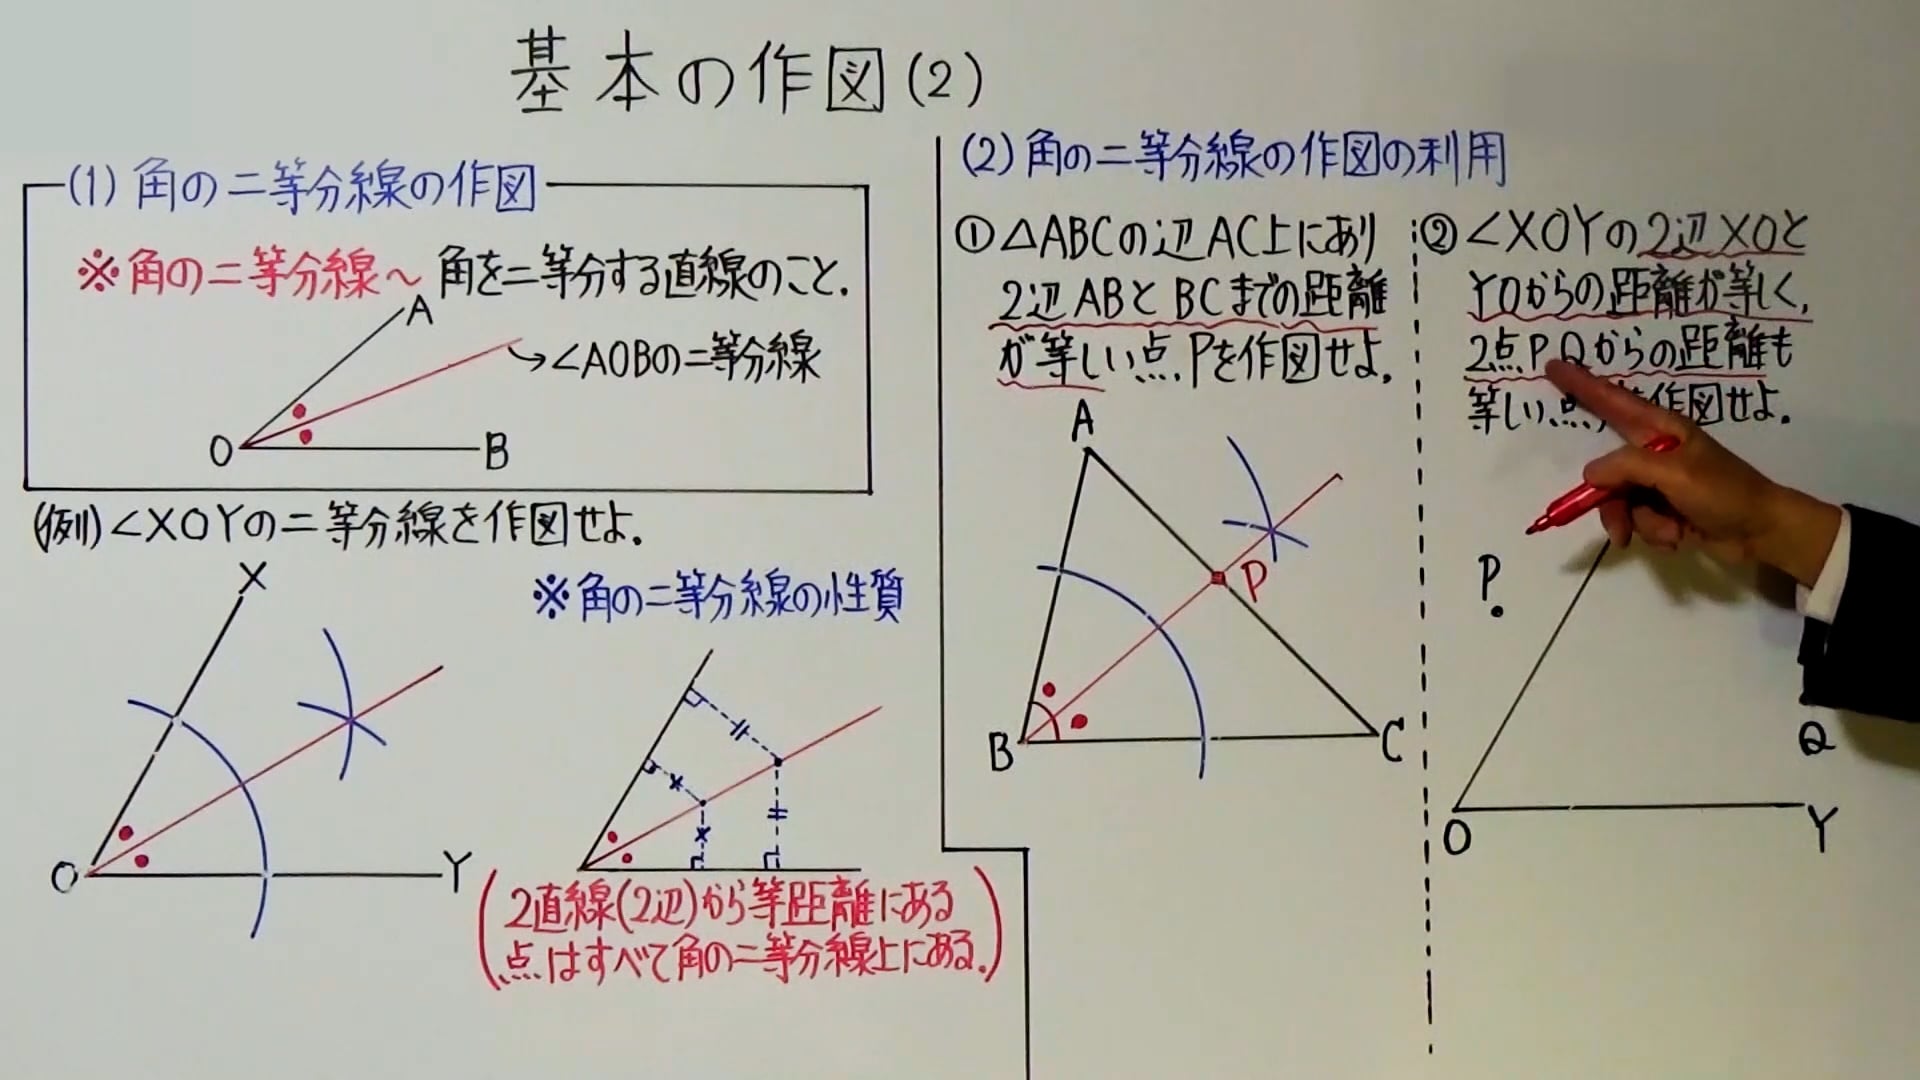 基本の作図(2)
(1) 角の二等分線の作図
※角の二等分線～ 角を二等分する直線のこと.
A
∠AOBの二等分線
O
B
(例) ∠XOYの二等分線を作図せよ.
X
O
Y
※角の二等分線の性質
2直線(2辺)から等距離にある
点はすべて角の二等分線上にある.
(2) 角の二等分線の作図の利用
① △ABCの辺AC上にあり
2辺ABとBCまでの距離
が等しい点Pを作図せよ.
A
P
B
C
② ∠XOYの2辺XOと
YOからの距離が等しく,
2点P,Qからの距離も
等しい点 を作図せよ.
P
Q
O
Y